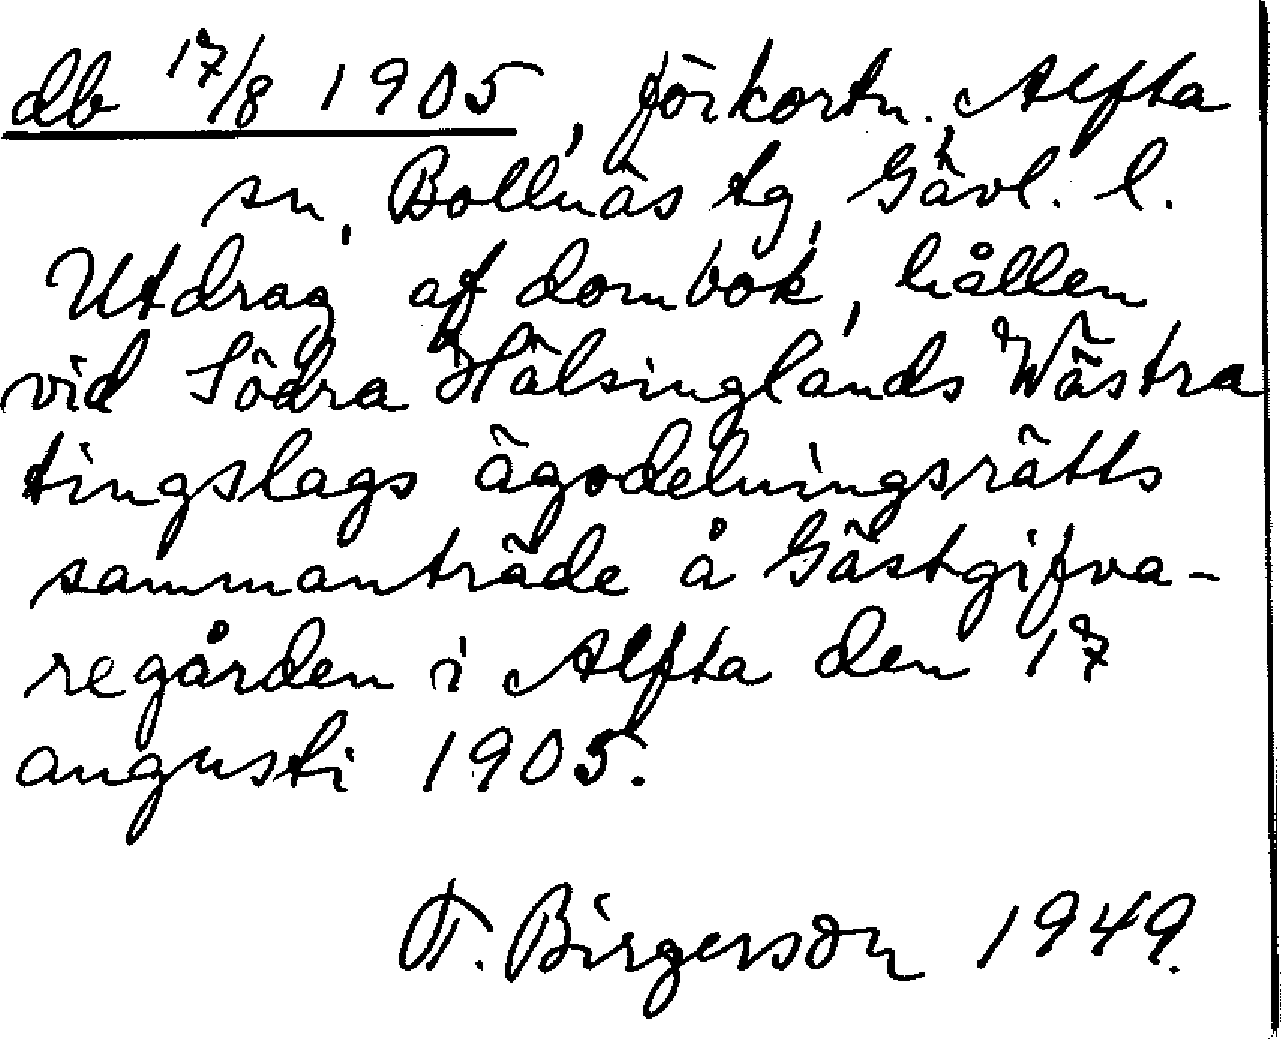 db 17/8 1905, förkortn. Alfta
sn, Bollnäs tg, Gävl. l.
Utdrag af dombok, hållen
vid Södra Hälsinglands Wästra
tingslags ägodelningsrätts
sammanträde å Gästgifva-
regården i Alfta den 17
augusti 1905.
T. Birgerson 1949.